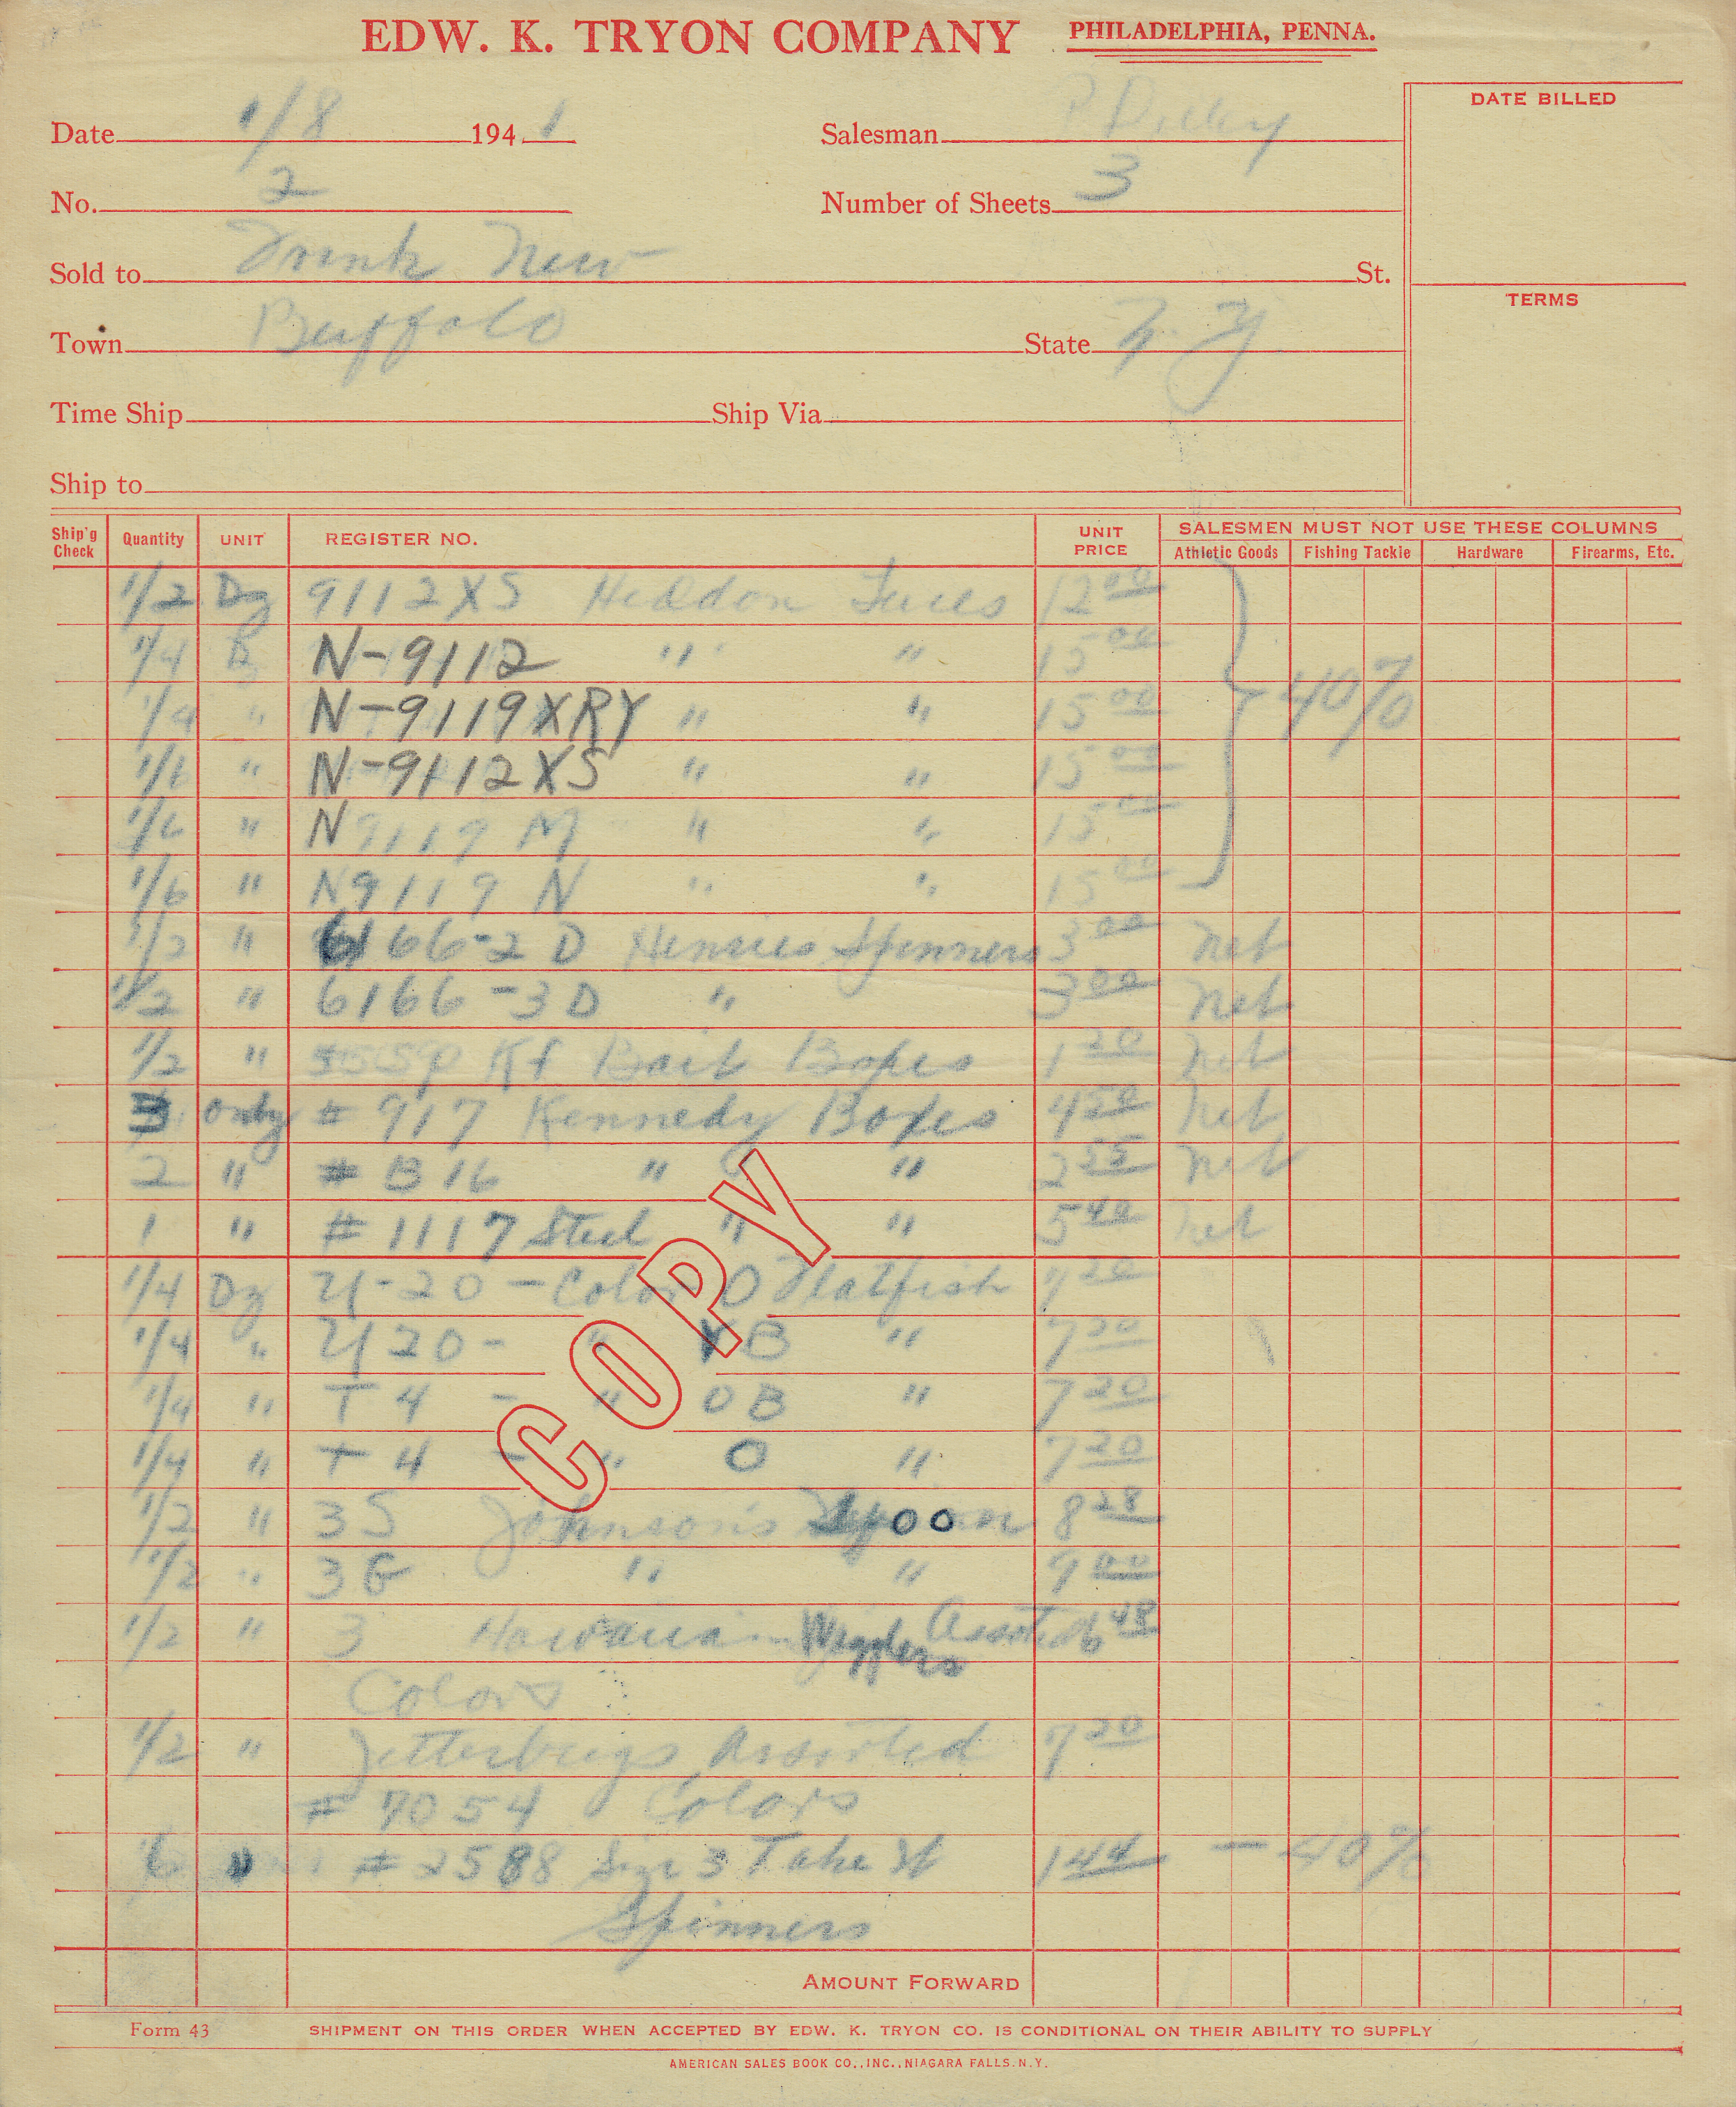 EDW. K. TRYON COMPANY PHILADELPHIA, PENNA.
DATE BILLED
Date 1/8 194 1 Salesman
No. 2 Number of Sheets 3
Sold to St.
TERMS
Town Buffalo State N.Y
Time Ship Ship Via
Ship to
Ship'g Check Quantity UNIT REGISTER NO. UNIT PRICE SALESMEN MUST NOT USE THESE COLUMNS
Athletic Goods Fishing Tackle Hardware Firearms, Etc.
1/2 Dz 9112XS Heddon Lures 12 00
1/4 Dz N-9112 " " 15 00
1/4 " N-9119XRY " " 15 00 40%
1/6 " N-9112XS " " 15 00
1/6 " N 9119 M " " 15 00
1/6 " N9119 N " " 15 00
1/2 " 6166-2 D Spinners 3 00 net
1/2 " 6166-3D " 3 00 net
1/2 " Bait Boxes 1 20 net
3 only # 917 Kennedy Boxes 4 50 net
2 " # B16 " " 2 55 net
1 " # 1117 Steel " " 5 40 net
1/4 Dz U-20 - Color O Flatfish 7 20
1/4 " U 20 - " YB " 7 20
1/4 " T 4 - " OB " 7 20
1/4 " T 4 - " O " 7 20
1/2 " 3 S Johnson's 8 28
1/2 " 3 G " " 9 00
1/2 " 3 Hawaiian Wigglers Assorted 6 48
Colors
1/2 " Jitterbugs Assorted 7 20
# 7054 Colors
6 " # 2588 Size 3 Take It 1 44 - 40%
Spinners
COPY
AMOUNT FORWARD
Form 43 SHIPMENT ON THIS ORDER WHEN ACCEPTED BY EDW. K. TRYON CO. IS CONDITIONAL ON THEIR ABILITY TO SUPPLY
AMERICAN SALES BOOK CO., INC., NIAGARA FALLS. N.Y.